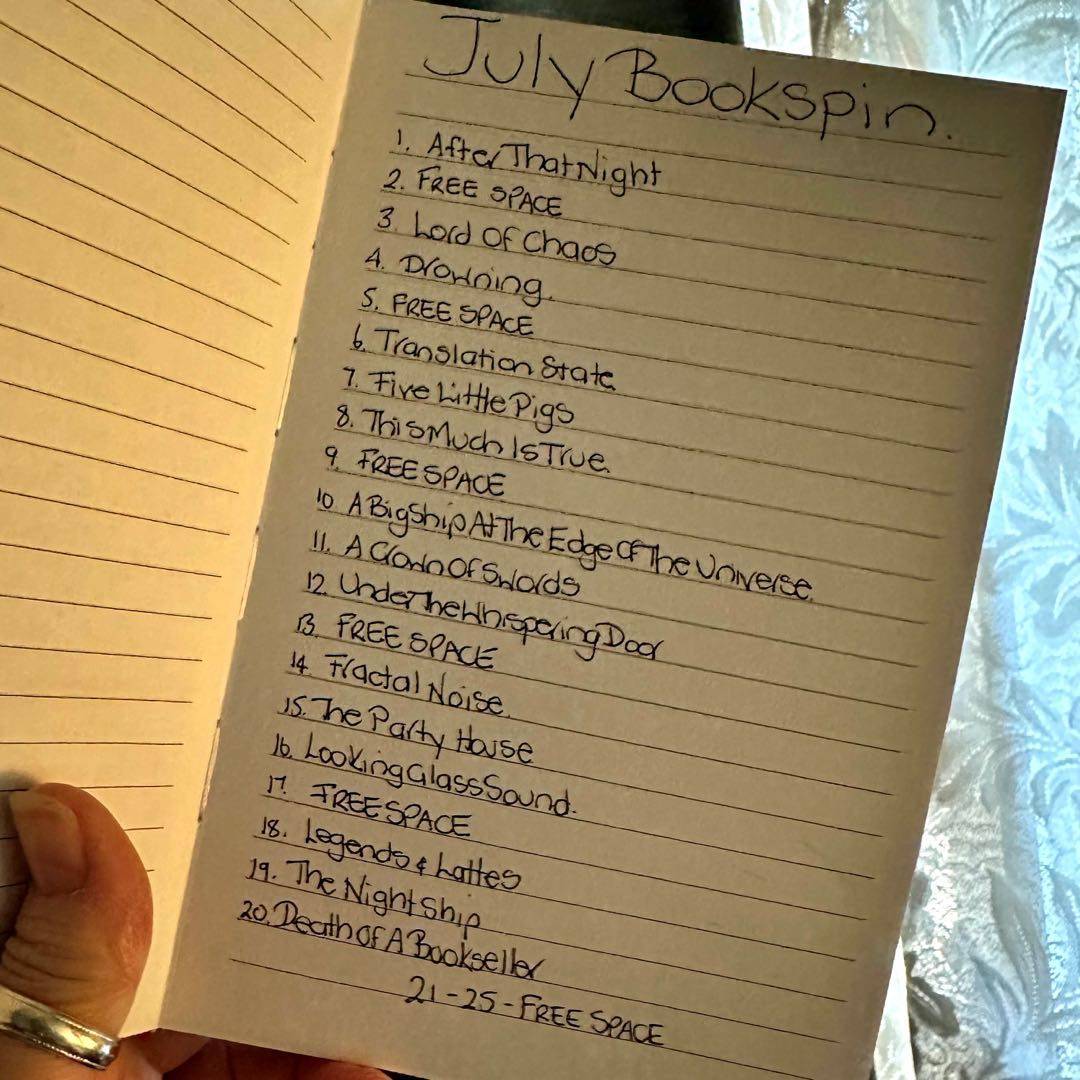 July Bookspin.
1. After That Night
2. FREE SPACE
3. Lord Of Chaos
4. Drowning.
5. FREE SPACE
6. Translation State
7. Five Little Pigs
8. This Much Is True.
9. FREE SPACE
10 A Big Ship At The Edge Of The Universe.
11. A Crown Of Swords
12. Under The Whispering Door
13. FREE SPACE
14. Fractal Noise.
15. The Party House
16. Looking Glass Sound.
17. FREE SPACE
18. Legends & Lattes
19. The Night Ship
20. Death Of A Bookseller
21-25 - FREE SPACE